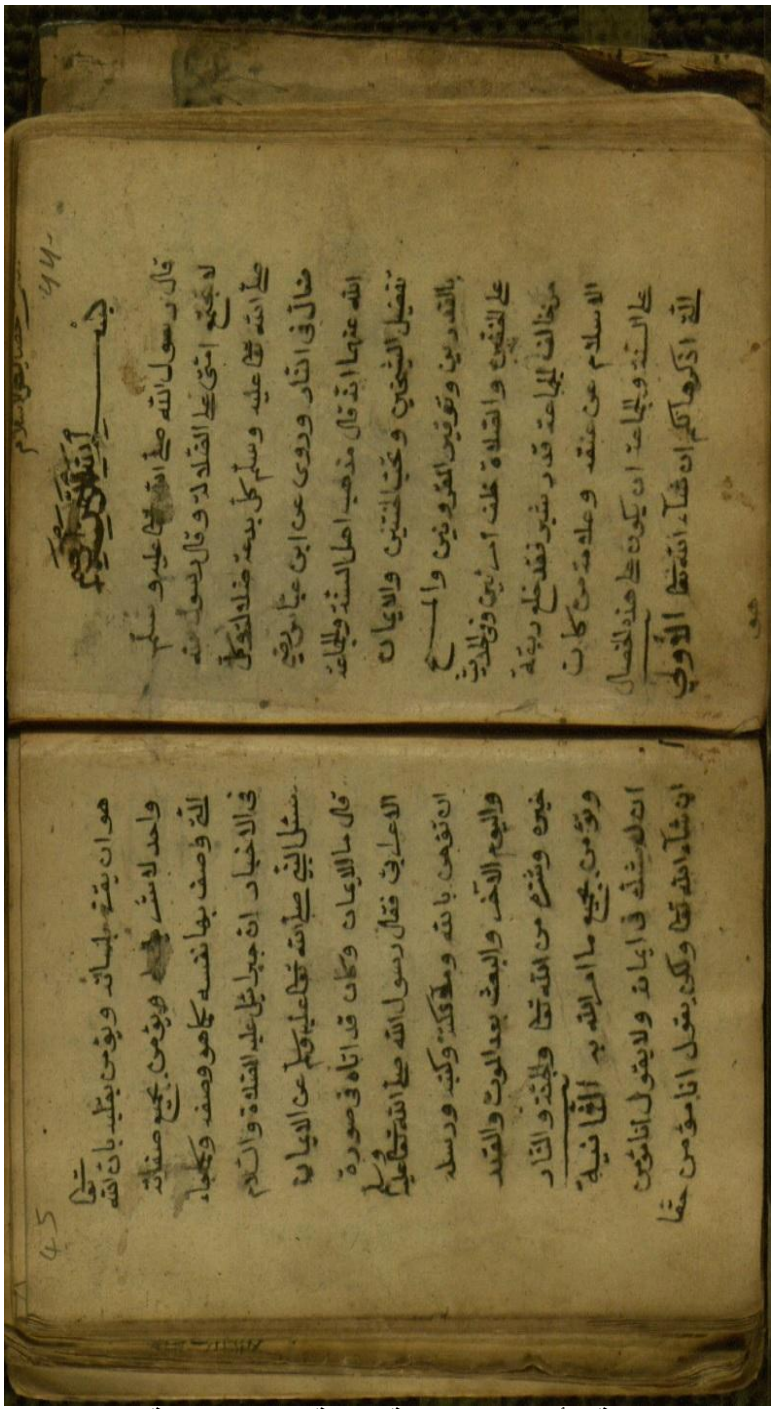 خصايص الاسلام
44
بسم الله الرحمن الرحيم
قال رسول الله صلى الله تعا عليه وسلم
لا تجتمع امتى على الضلالة وقال رسول الله
صلى الله تعا عليه وسلم كل بدعة ضلالة وكل
ضال فى النار وروى عن ابن عباس رضى
الله عنهما انه قال مذهب اهل السنة والجماعة
تفضيل الشيخين وتحب الختنين والايمان
بالقدرين وتوقير القرونين والمسح
على الخفين والصلاة خلف امرئين وفى الحديث
من خالف الجماعة قدر شبر فقد خلع ربقة
الاسلام عن عنقه وعلامة من كان
على السنة والجماعة ان يكون على هذه الخصال
التى اذكرها لكم ان شاء الله تعا الاولى
هو
45
هو ان يقر بلسانه ويؤمن بقلبه بان الله تعا
واحد لا شريك له ويؤمن بجميع صفاته
التى وصف بها نفسه كما هو وصفه وكما جاء
فى الاخبار ان جبرائيل عليه الصلاة والسلام
سئل النبى صلى الله تعا عليه وسلم عن الايمان
قال ما الايمان وكان قد اتاه فى صورة
الاعرابى فقال رسول الله صلى الله تعا عليه وسلم
ان تؤمن بالله وملائكته وكتبه ورسله
واليوم الآخر والبعث بعد الموت والقدر
خيره وشره من الله تعا والجنة والنار
وتؤمن بجميع ما امر الله به الثانية
ان لا يشك فى ايمانه ولا يقول انا مؤمن
ان شاء الله تعا ولكن يقول انا مؤمن حقا